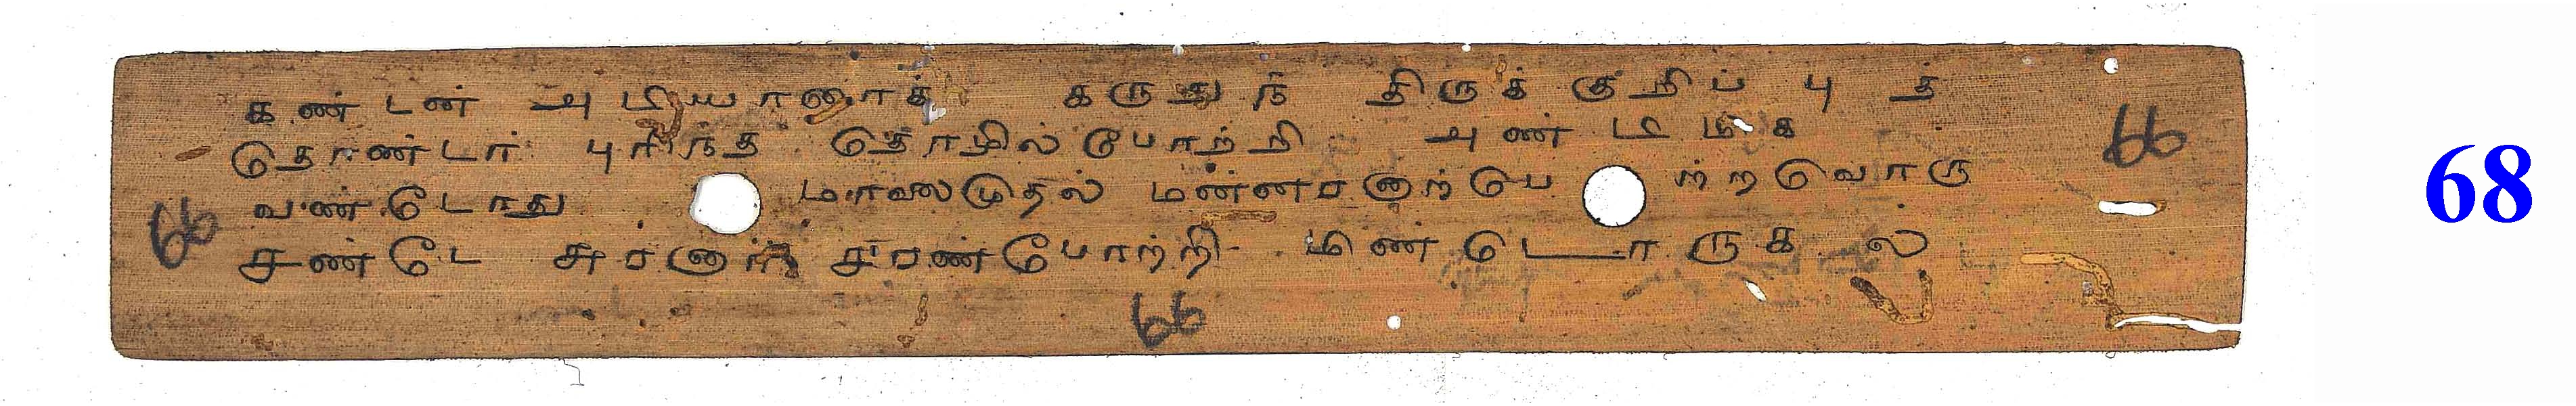 கண்டன் அடியானாக் கருதுந் திருக் குறிப் புத்
தொண்டர் புரிந்த தொழில்போற்றி அண்டமிக
வண்டோது மாலைமுதல் மன்னரனுற்பெ ற்றவொரு
சண்டே சுரனார் சரண்போற்றி மிண்டொருக ல
66
66
66
68